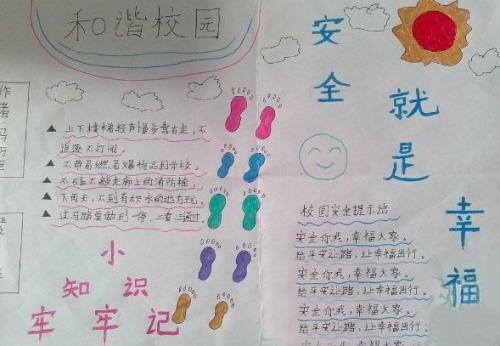 和谐校园
安全就是幸福
▲上下楼梯轻声慢步靠右走,不
追逐不打闹。
▲不带易燃易爆物品到学校。
▲不在走廊上的消防栓
▲下雨天,不到有积水的地方玩。
▲过马路要做到一停、二看、三通过。
小
知识
牢牢记
校园安全提示语
安全你我,幸福大家。
给平安让路,让幸福出行。
安全你我,幸福大家。
给平安让路,让幸福出行。
安全你我,幸福大家。
给平安让路,让幸福出行。